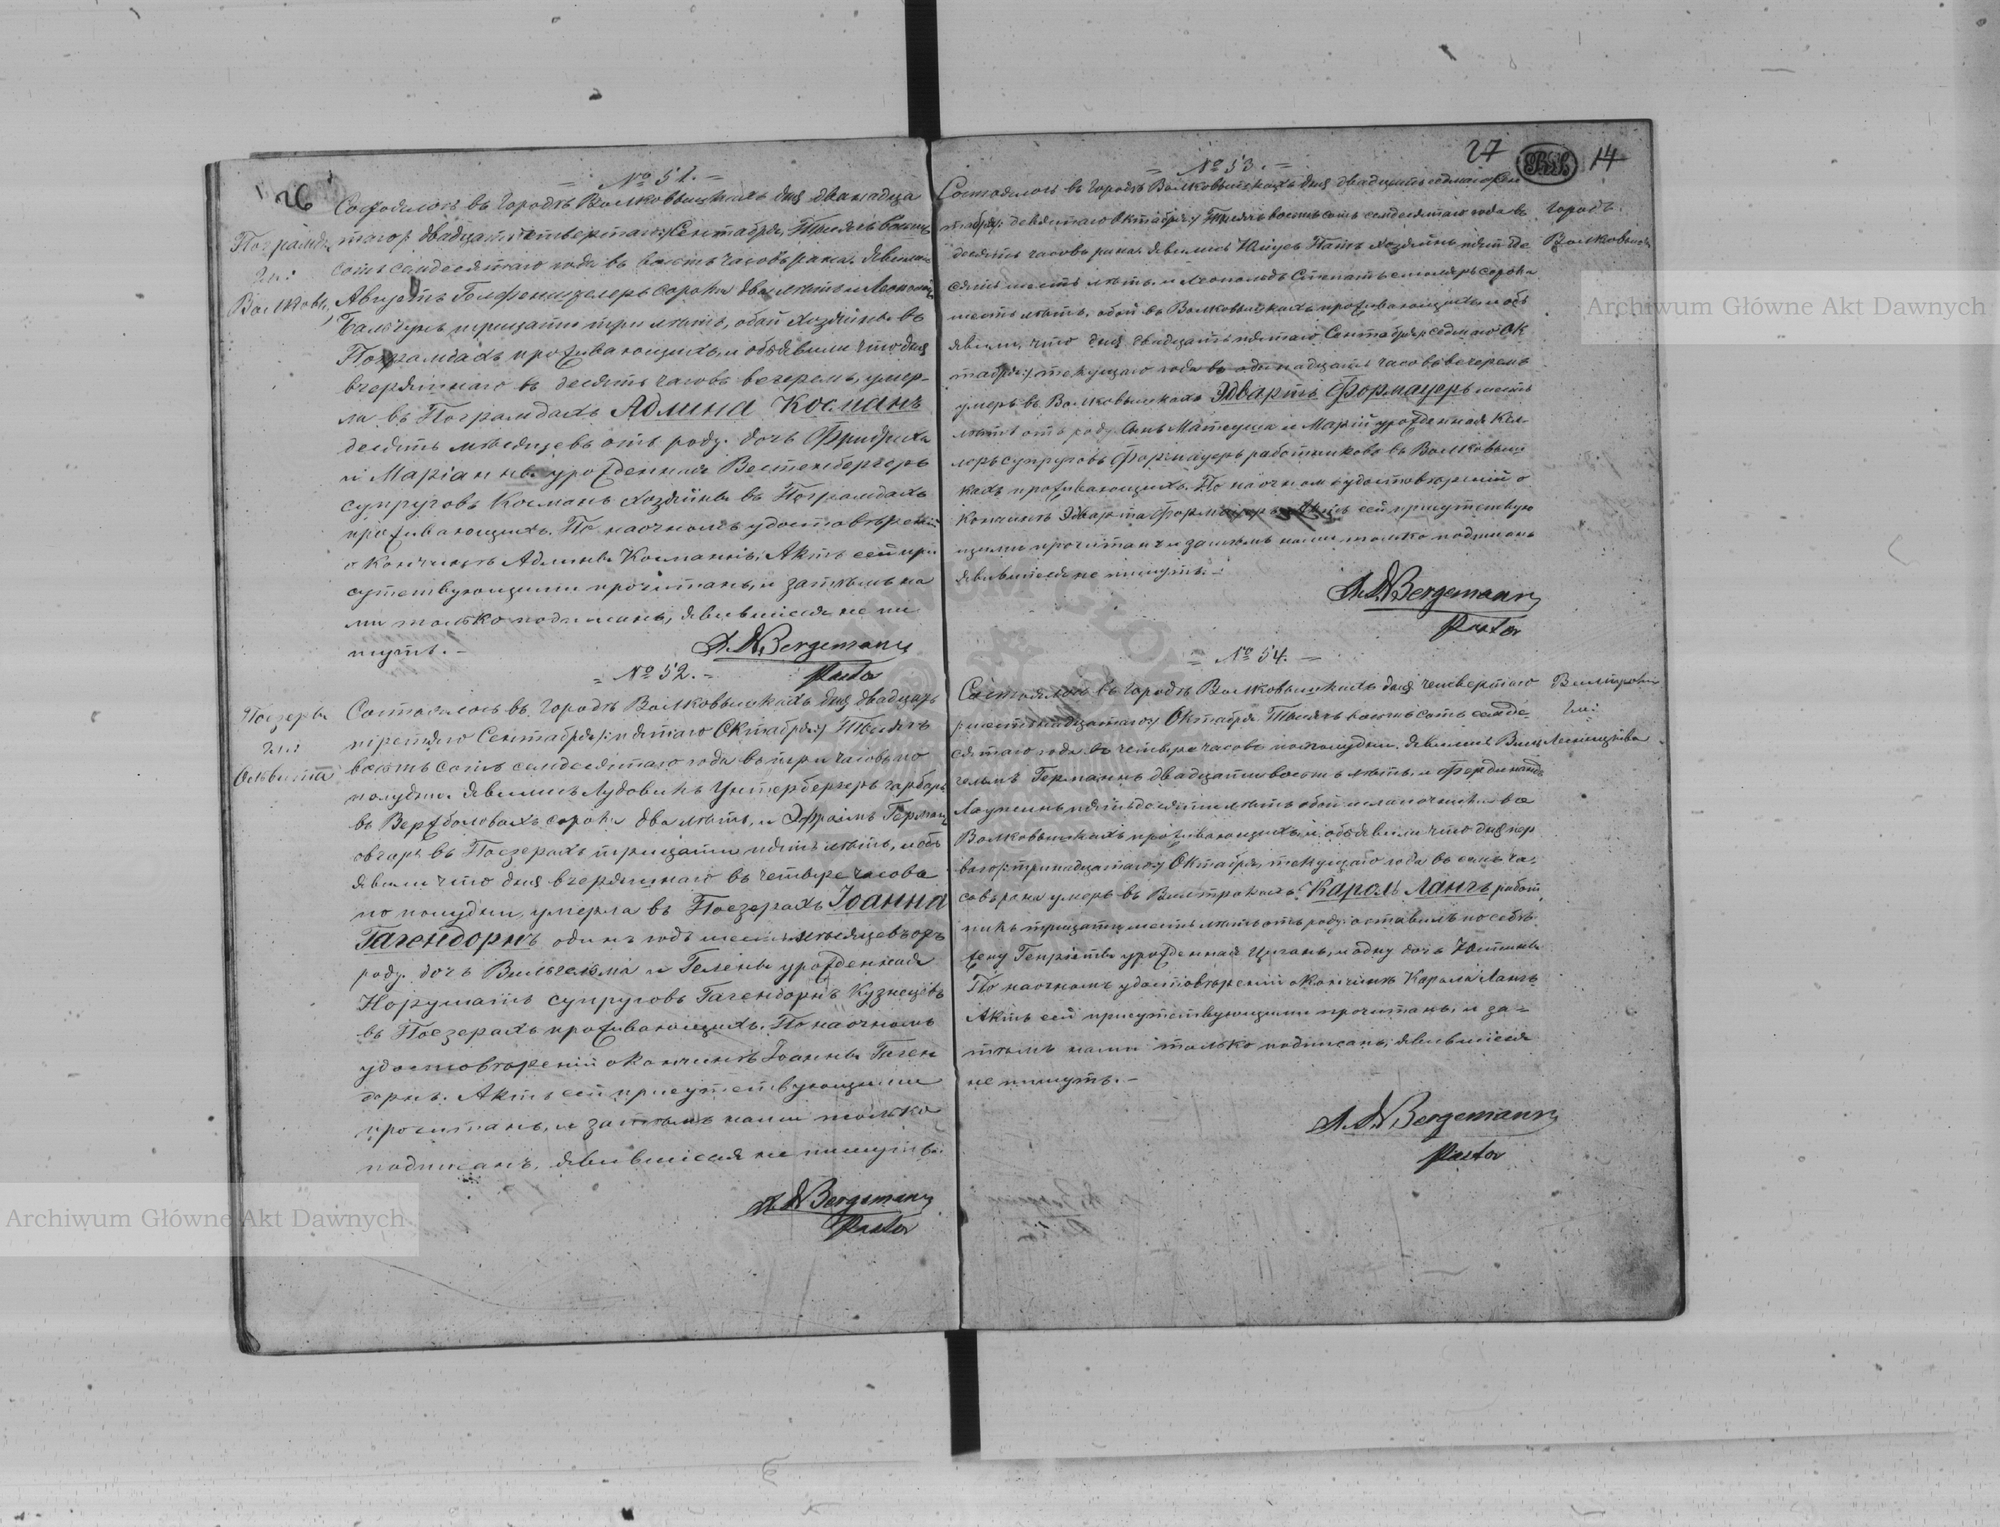 26
№ 51.
Пограмды
гм:
Волковы,
Состоялось въ городѣ Волковышкахъ дня двѣнадца
таго /: двадцать четвертаго :/ Сентября, Тысяча восемь
сотъ семдесятаго года въ восемь часовъ рана. Явились
Августъ сорокъ два лѣтъ и Леопольд
тридцати три лѣтъ, обои хозяины въ
Пограмдахъ проживающихъ, и объявили что дня
вчеряшнаго въ десять часовъ вечеромъ, умер-
ла въ Пограмдахъ Адлина Косманъ
десять мѣсяцевъ отъ роду. дочь Фридриха
и Маріанны урожденная Вестенбергеръ
супруговъ Косманъ хозяины въ Пограмдахъ
проживающихъ. По наочномъ удостовѣреній
о кончинѣ Адлины Косманъ, Актъ сей при
сутствующими прочитанъ, и затѣмъ на
ми только подписанъ, явившіеся не пи
шутъ. –
A. W. Bergemann
Pastor
№ 52.
Поезеры
гм:
Ольвита
Состоялось въ городѣ Волковышкахъ дня двадцать
третяго Сентября /: пятаго Октября :/ Тысяча
восемь сотъ семдесятаго года въ три часовъ по
полудни. Явились Лудовикъ Унтербергеръ гарбарь
въ Вержболовахъ сорокъ два лѣтъ, и Эфраимъ Герман
овчарь въ Поезерахъ тридцати пять лѣтъ, и объ
явили что дня вчеряшнаго въ четыре часова
по полудни, умерла въ Поезерахъ Іоанна
Гагендорнъ, одинъ годъ шесть мѣсяцевъ отъ
роду. дочь Вильгельма и Гелены урожденная
Норушатъ супруговъ Гагендорнъ Кузнецовъ
въ Поезерахъ проживающихъ. По наочномъ
удостовѣреній о кончинѣ Іоанны Гаген
дорнъ. Актъ сей присутствующими
прочитанъ, и затѣмъ нами только
подписанъ, явившіеся не пишутъ.
A. W. Bergemann
Pastor
27
14
№ 53.
Городъ
Волковышки
Состоялось въ городѣ Волковышкахъ дня двадцать седмаго Сен
тября /: девятаго Октября :/ Тысяча восемь сотъ семдесятаго года въ
десять часовъ рана. Явились Юлусъ Патъ хозяинъ пятьде
сятъ шесть лѣтъ, и Леопольдъ столяръ сорокъ
шесть лѣтъ, обои въ Волковышкахъ проживающихъ, и объ
явили, что дня двадцать пятаго Сентября /: седмаго Ок
тября :/ текущаго года въ одинадцать часовъ вечеромъ
умеръ въ Волковышкахъ Эдвартъ Формауеръ шесть
лѣтъ отъ роду Сынъ Матеуша и Марій урожденная Кел-
леръ супруговъ Формауеръ работниковъ въ Волковыш
кахъ проживающихъ. По наочномъ удостовѣреній о
кончинѣ Эдварта Формауеръ Актъ сей присутствую
щими прочитанъ и затѣмъ нами только подписанъ
явившіеся не пишутъ. –
A. W. Bergemann
Pastor
№ 54.
гм:
Состоялось въ городѣ Волковышкахъ дня четвертаго
/: шестнадцатаго :/ Октября Тысяча восемь сотъ семде-
сятаго года въ четыре часова по полудни. Явились Виль
гельмъ Германнъ двадцати восемь лѣтъ, и Фердинандъ
пятьдесяти лѣтъ обои въ
Волковышкахъ проживающихъ, и объявили что дня пер
ваго /: тринадцатаго :/ Октября, текущаго года въ семь ча,
совъ рана умеръ въ Вистрокахъ, Кароль Лангъ работ
никъ тридцати шесть лѣтъ отъ роду: оставилъ по себѣ
жену Генріету урожденная Цыганъ, и одну дочь Юстину
По наочномъ удостовѣреній о кончинѣ Кароля Лангъ
Актъ сей присутствующими прочитанъ, и за=
тѣмъ нами только подписанъ, явившіеся
не пишутъ. –
A. W. Bergemann
Pastor
Archiwum Główne Akt Dawnych
Archiwum Główne Akt Dawnych